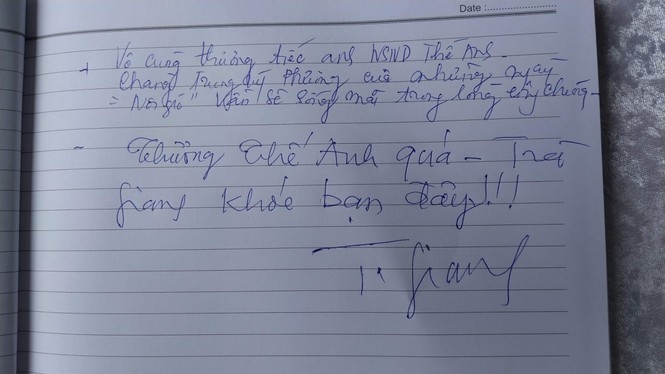 Date :
+ Vô cùng thương tiếc anh NSND Thế Anh -
Chàng Trung úy Phương của những ngày
"Nổi gió" vẫn sẽ sống mãi trong lòng công chúng -
- Thương Thế Anh quá - Trà
Giang khóc bạn đây!!!
Tr Giang